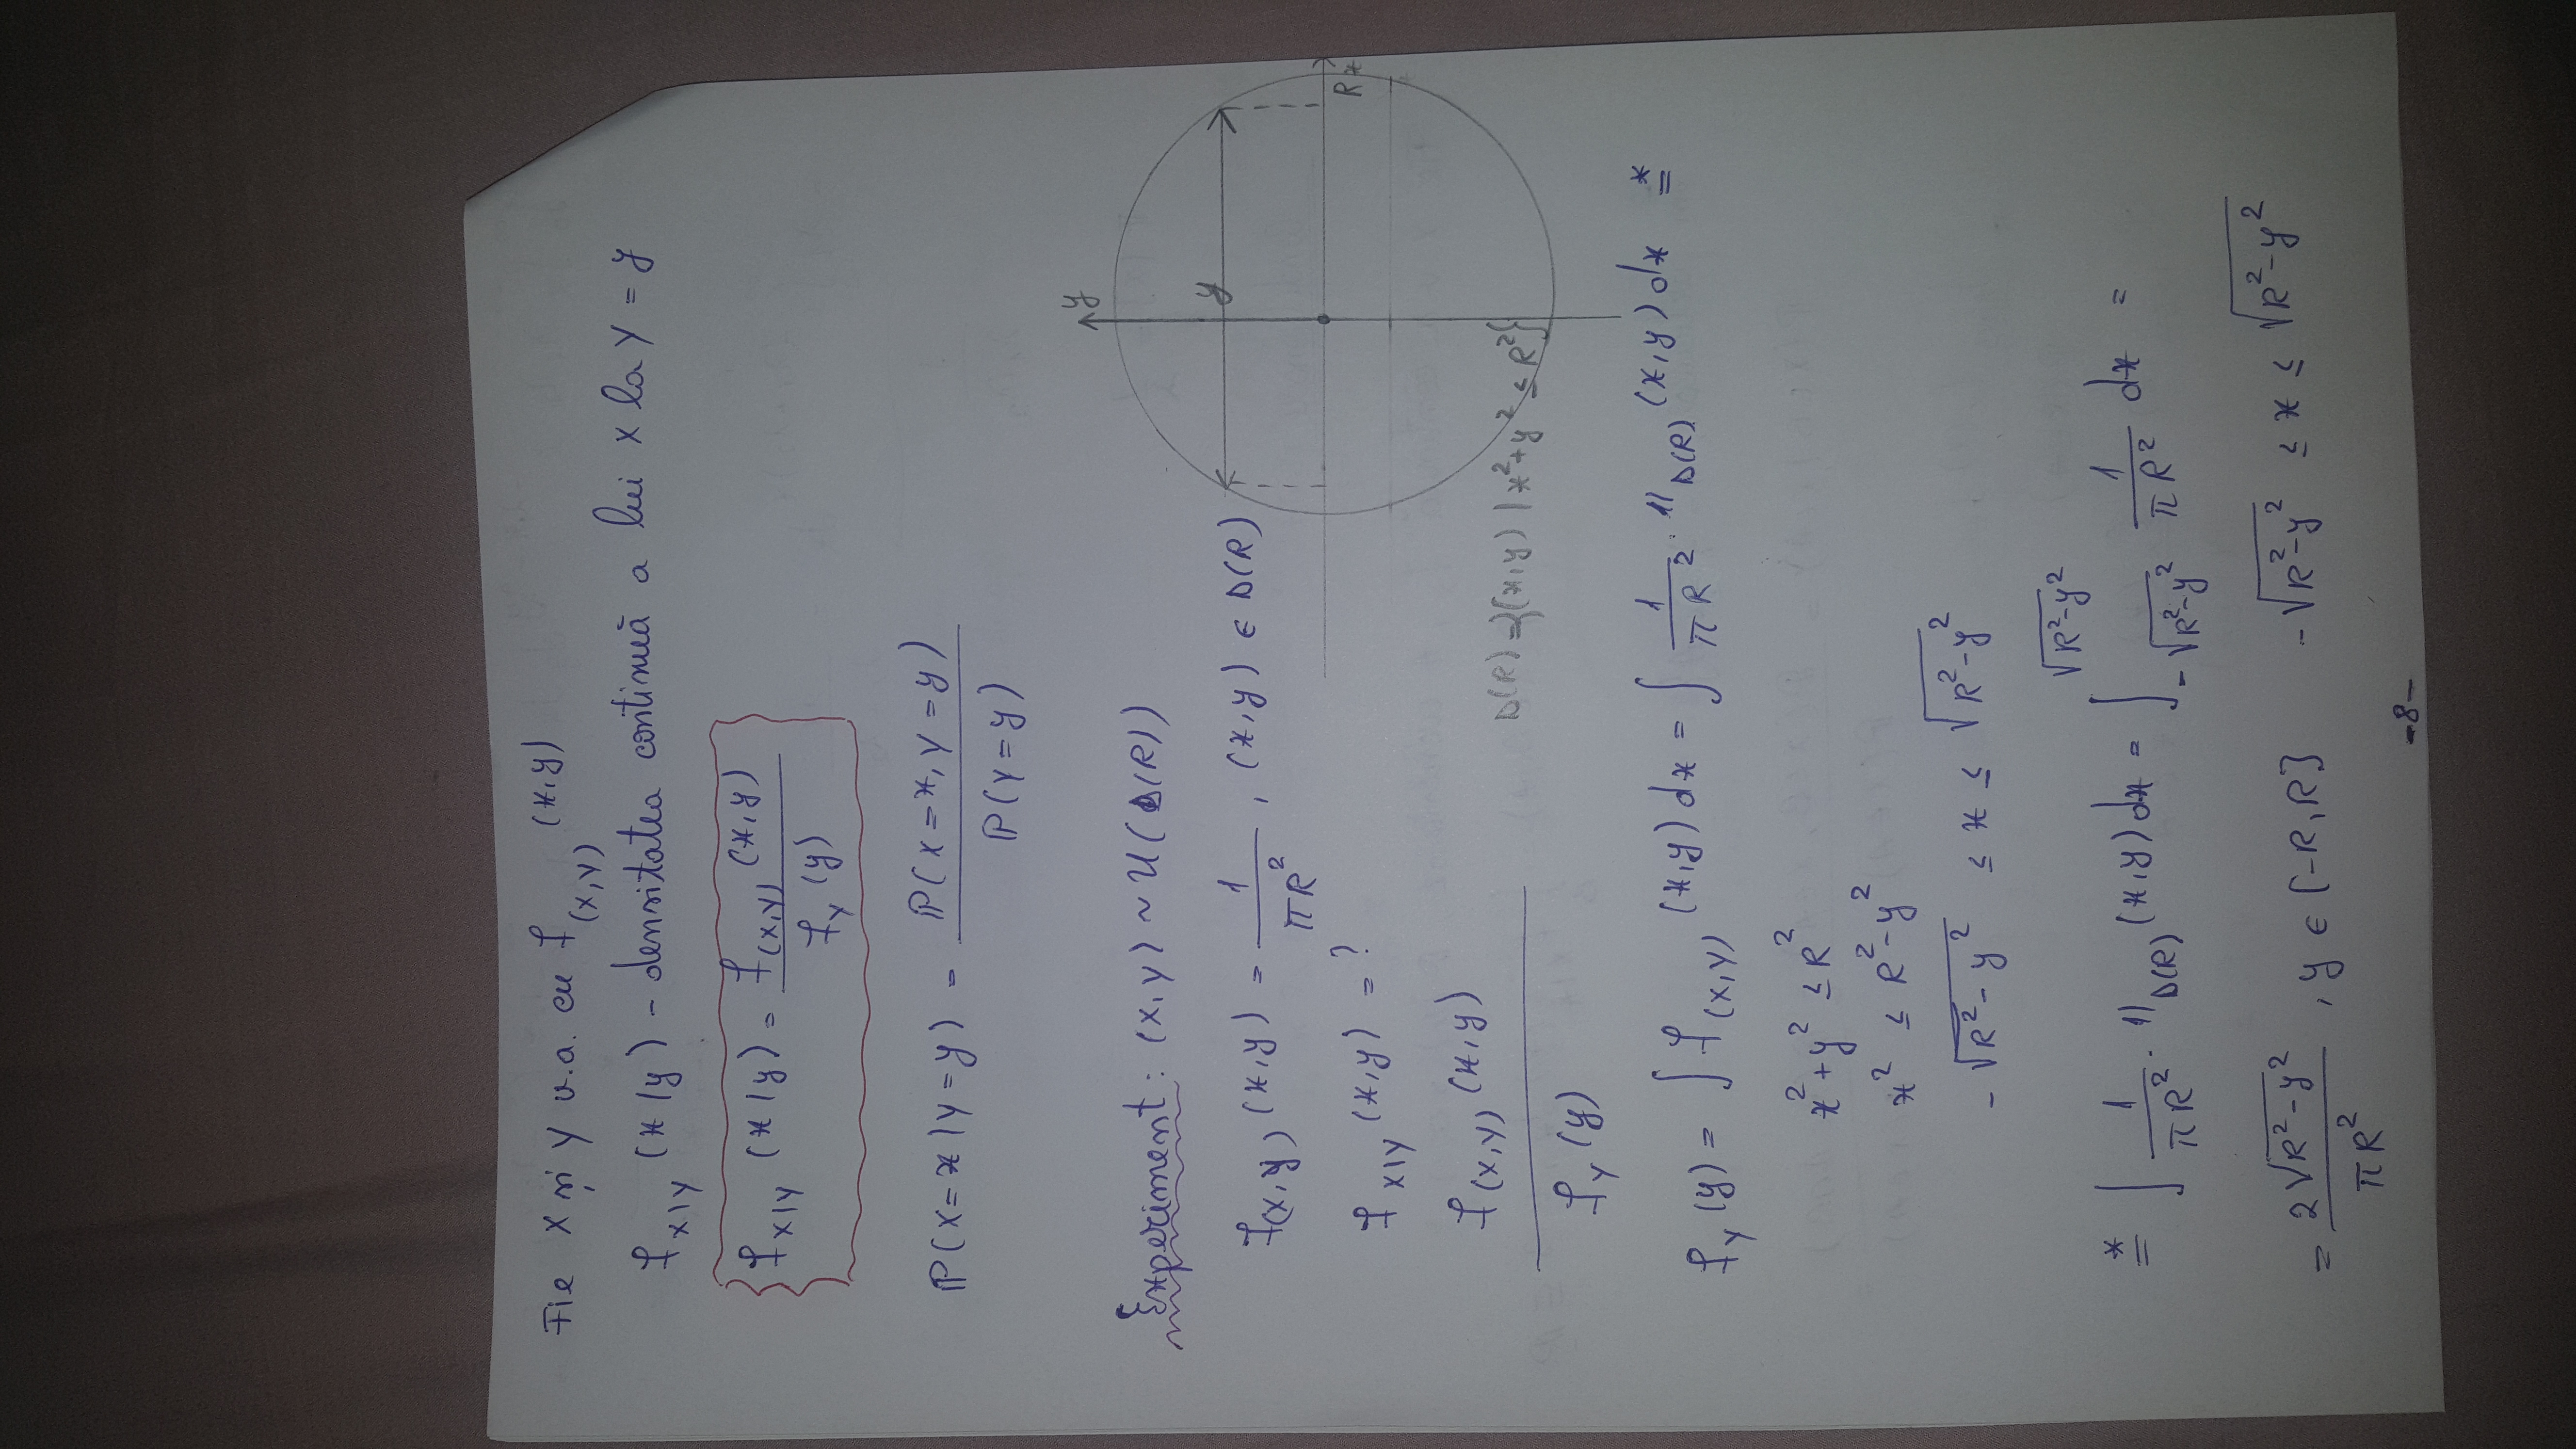 Fie X și Y v.a. cu f_(X,Y) (x,y)
f_X|Y (x|y) - densitatea continuă a lui X la Y = y
f_X|Y (x|y) = f_(X,Y) (x,y) / f_Y (y)
ℙ(X=x|Y=y) = ℙ(X=x, Y=y) / ℙ(Y=y)
Experiment: (X,Y) ~ U(D(R))
f_(X,Y) (x,y) = 1 / πR² , (x,y) ∈ D(R)
f_X|Y (x,y) = ?
f_(X,Y) (x,y) / f_Y (y)
y
y
R x
D(R) = {(x,y) | x²+y² ≤ R²}
f_Y (y) = ∫ f_(X,Y) (x,y) dx = ∫ 1/πR² · 𝟙_D(R) (x,y) dx =*
x² + y² ≤ R²
x² ≤ R² - y²
-√(R² - y²) ≤ x ≤ √(R² - y²)
=* ∫ 1/πR² · 𝟙_D(R) (x,y) dx = ∫_{-√(R²-y²)}^{√(R²-y²)} 1/πR² dx =
= 2√(R²-y²) / πR² , y ∈ [-R, R] -√(R²-y²) ≤ x ≤ √(R²-y²)
-8-